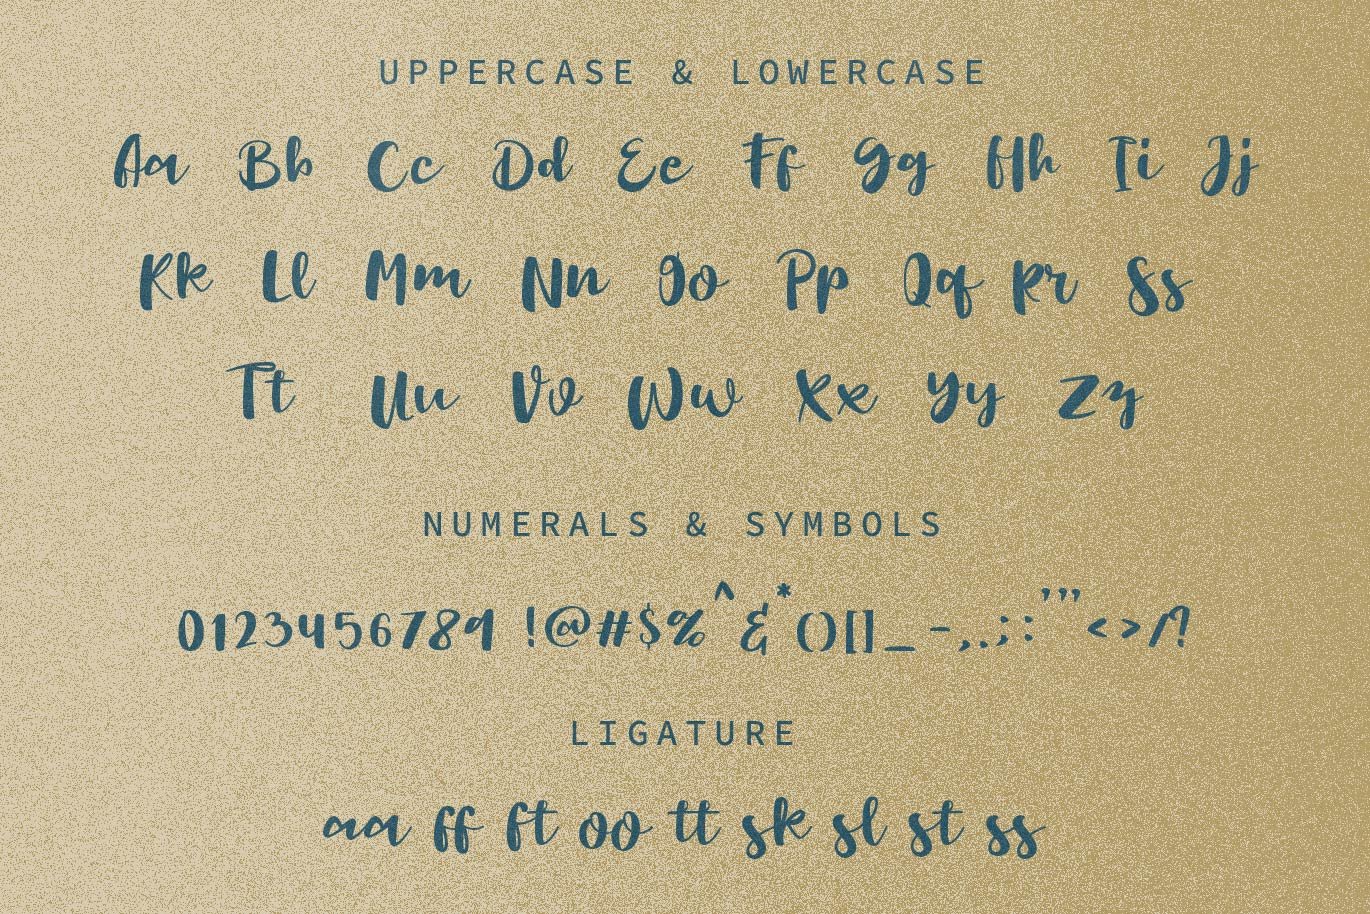 UPPERCASE & LOWERCASE
Aa Bb Cc Dd Ee Ff Gg Hh Ii Jj
Kk Ll Mm Nn Oo Pp Qq Rr Ss
Tt Uu Vv Ww Xx Yy Zz
NUMERALS & SYMBOLS
0123456789 !@#$%^&*()[]_-,.;:'"<>/?
LIGATURE
aa ff ft oo tt sk sl st ss